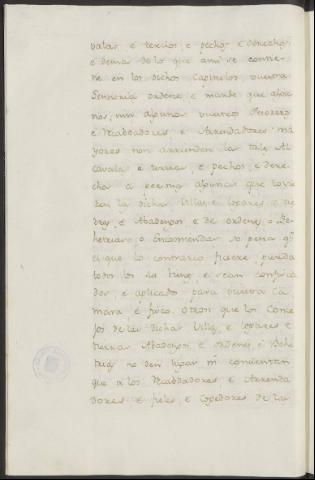 valas, e tercios, e pechos, e derechos
e demas de lo que ansi se contie-
ne en los dichos Capitulos, vuestra
Señoria ordene, e mande que aqui
nos, nin algunos vuestros Thesoreros
e Recabdadores, e Arrendadores ma-
yores non arrienden las tales Al-
cavalas e tercias, e pechos, e dere-
chos a persona algunas que
en las dichas Villas, e logares e
e Abadengos e de ordenes, o Be-
hetrias, o Encomiendas so pena q̃
el que lo contrario ficiere, pierda
todos los sus bienes e sean confisca-
dos, e aplicados para vuestra Ca-
mara, e fisco, otrosi que los Conce-
jos de las dichas Villas, e logares e
tierras Abadengos, e ordenes, e Behe-
trias no den lugar ni consientan
que a los Recabdadores, e Arrenda-
dores e fieles, e Cogedores de las